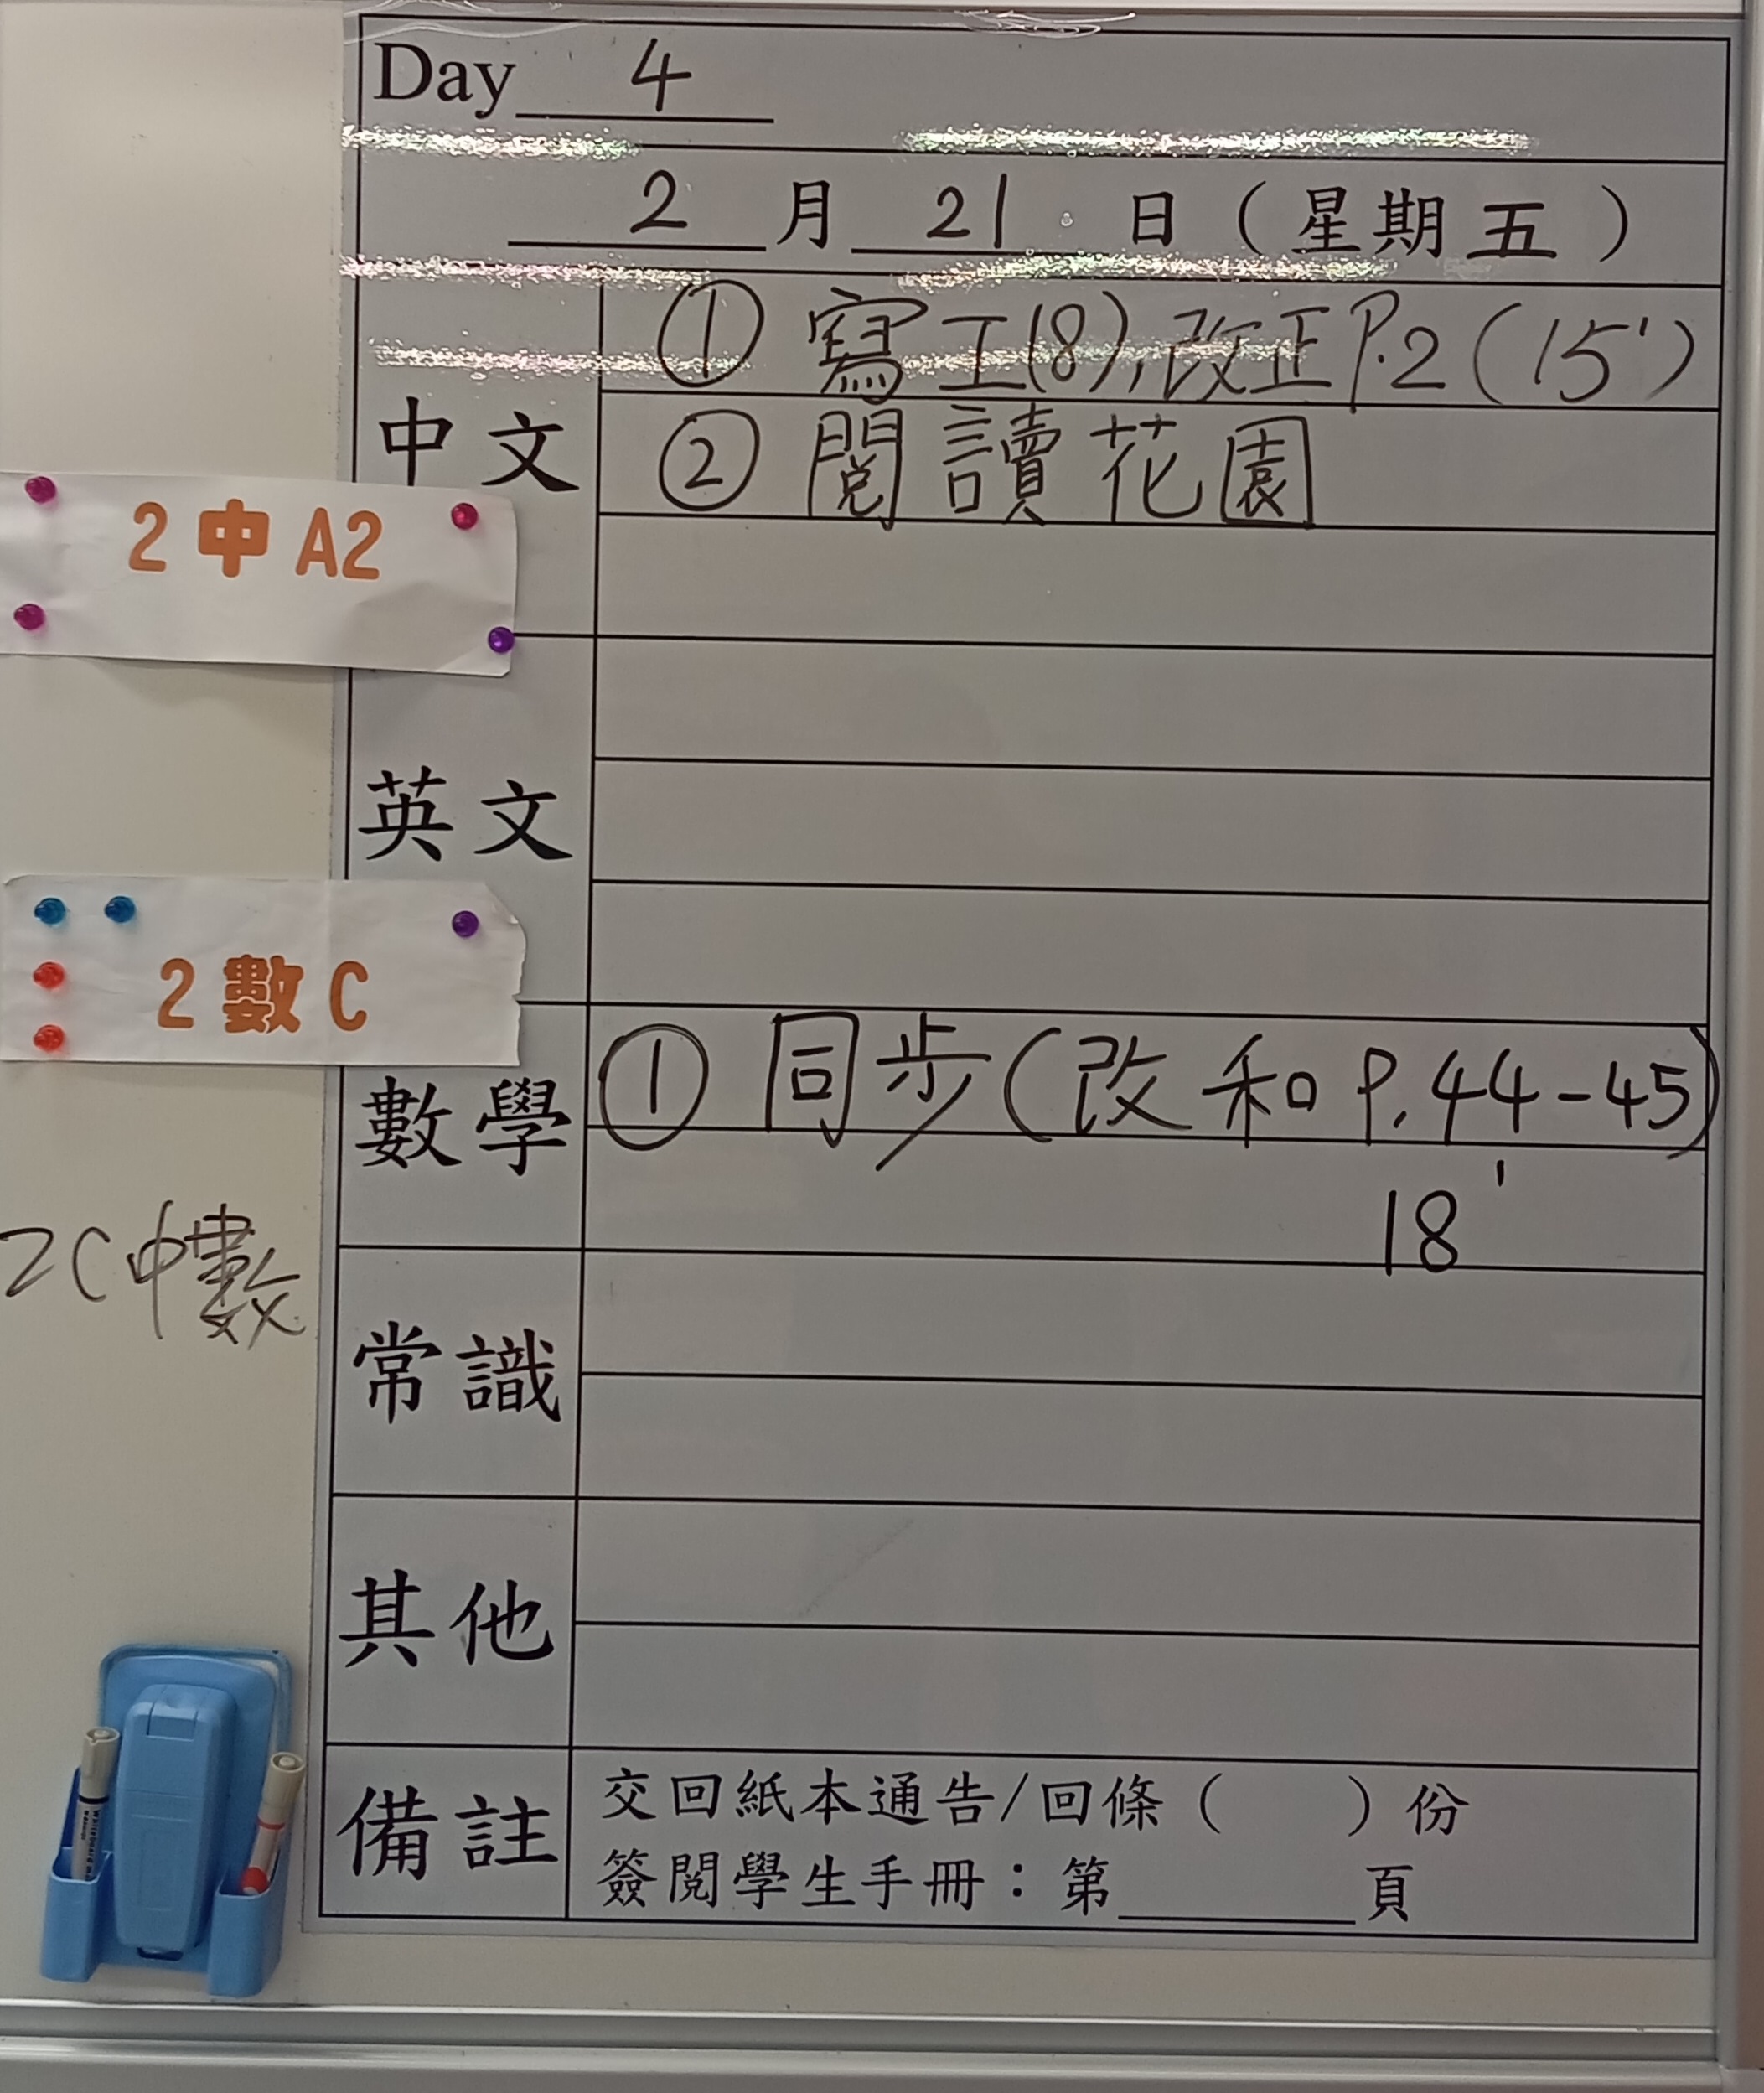 Day 4
2 月 21 日 ( 星期 五 )
中文
① 寫工(8), 改正 P.2 (15')
② 閱讀花園
2 中 A2
英文
2 數 C
數學
① 同步 ( 改 和 P. 44-45)
18'
2C 中數
常識
其他
備註
交回紙本通告/回條 ( ) 份
簽閱學生手冊：第______頁